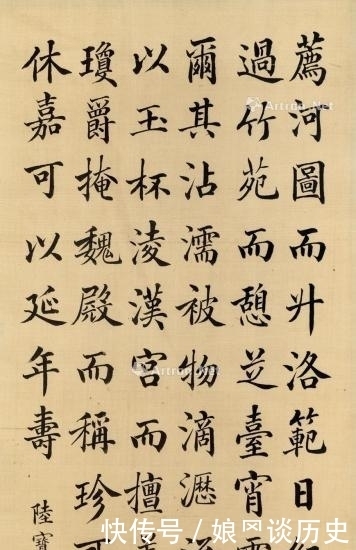 薦河圖而升洛範日
過竹苑而憩芝臺宵
爾其沾濡被物滴瀝
以玉杯淩漢宮而擅
瓊爵掩魏殿而稱珍可
休嘉可以延年壽
陸寶
Artron.Net
Artron.Net
快传号／娘囡谈历史